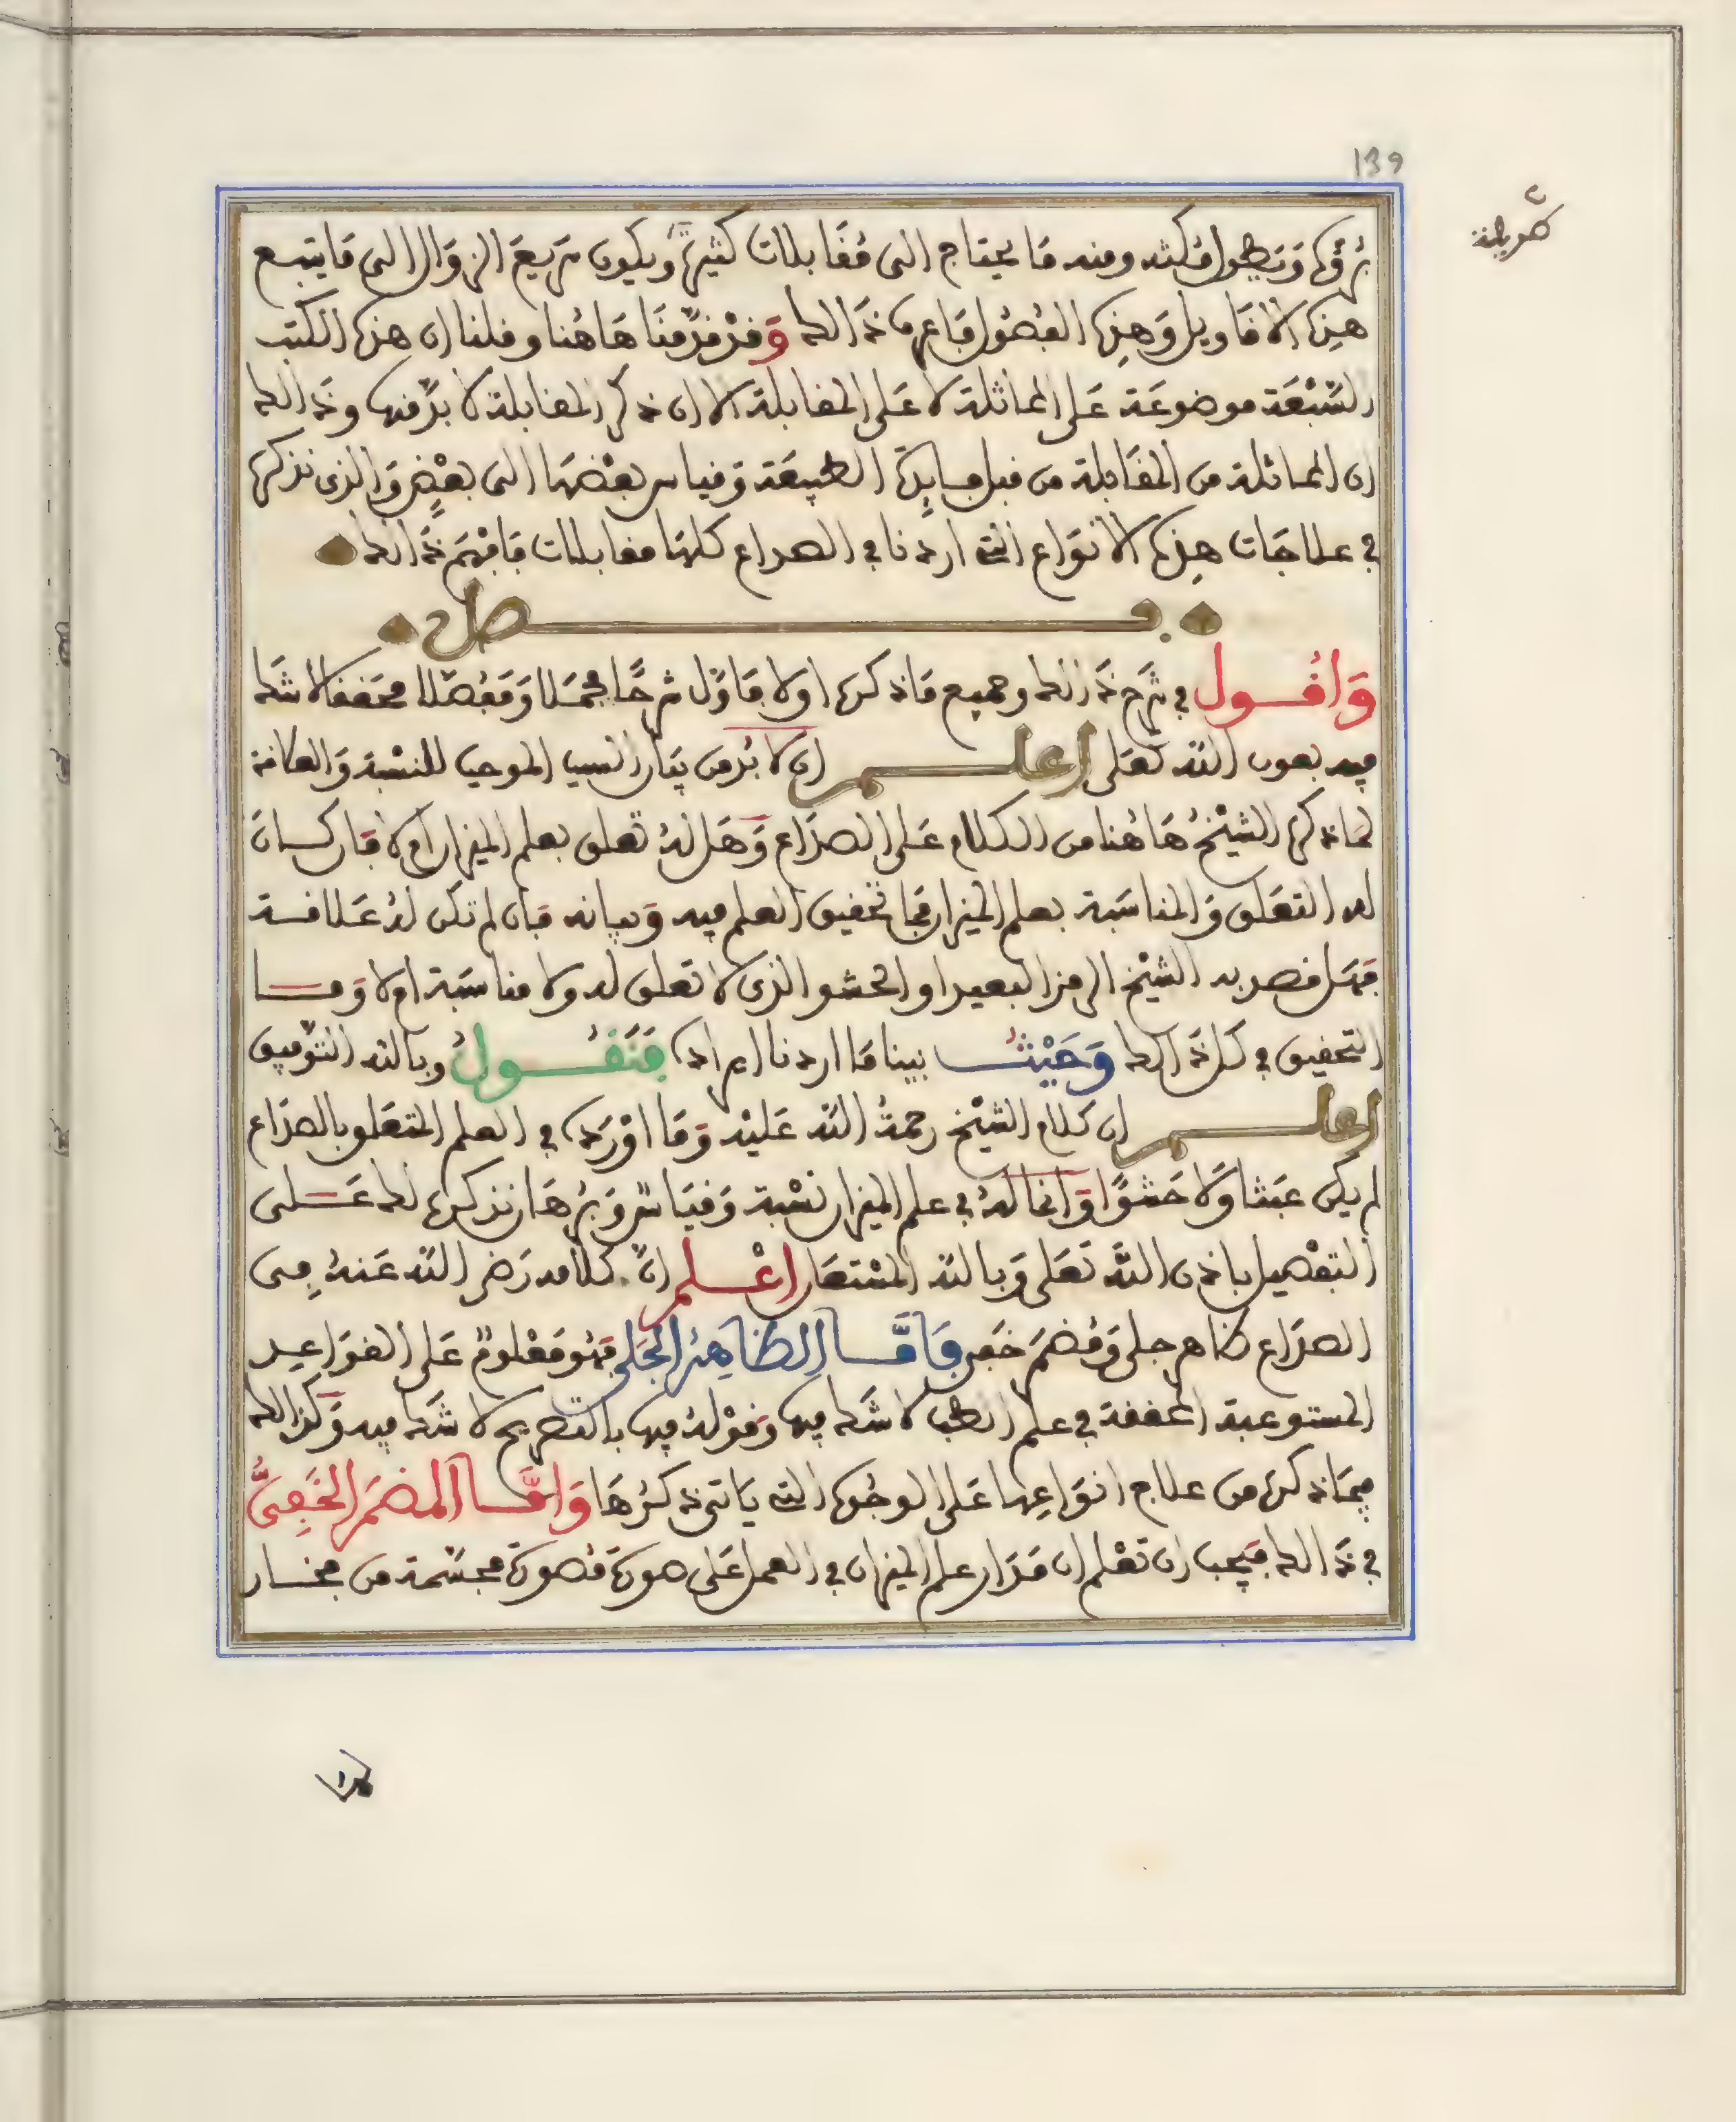 139
طويلة
برؤها ويطول مكثه ومنه ما يحتاج الى مقابلات كثيرة ويكون سريع الزوال الى ما يتبع
هذه الاقاويل وهذه الفصول فاعرف ذالك وقد قدمنا هاهنا وقلنا ان هذه الكتب
السبعة موضوعة على المماثلة لا على المقابلة الا ان ذكر المقابلة لا بد منه وذالك
ان المماثلة من المقابلة من قبل الطبيعة وقياس بعضها الى بعض والذى نذكره
في علاجات هذه الانواع التى اردنا في الصداع كلها مقابلات فافهم ذالك
فصل
واقول في شرح ذالك وجميع ما ذكره اولا فاول شرحا مجملا ومفصلا محققا لا شك
فيه بعون الله تعلى اعلم ان لا بد من بيان السبب الموجب للنسبة والعلاقة
لما ذكره الشيخ هاهنا من الكلام على الصداع وهل له تعلق بعلم الميزان ام لا فان كان
له التعلق والمناسبة بعلم الميزان فما تحقيق العلم فيه وبيانه فان لم تكن له علاقة
فهل قصد به الشيخ الرمز البعيد او الحشو الذى لا تعلق له ولا مناسبة ام لا وما
التحقيق في كل ذالك وحيث بينا ما اردنا ايراده فنقول وبالله التوفيق
اعلم ان كلام الشيخ رحمة الله عليه وما اورده في العلم المتعلق بالصداع
لم يكن عبثا ولا حشوا وانما له في علم الميزان نسبة وقياس وبرهان نذكره لك على
التفصيل باذن الله تعلى وبالله المستعان اعلم ان كلامه رضى الله عنه في
الصداع ظاهر جلى ومضمر خفى فاما الظاهر الجلى فهو معلوم على القواعد
المستوعبة المحققة في علم الطب لا شك فيها وقوله فيها بالتصريح لا شك فيه وكذالك
فيما ذكره من علاج انواعها على الوجوه التى ياتى ذكرها واما المضمر الخفى
في ذالك فيجب ان تعلم ان مدار علم الميزان في العمل على صورة مصورة مجسمة من نحاس